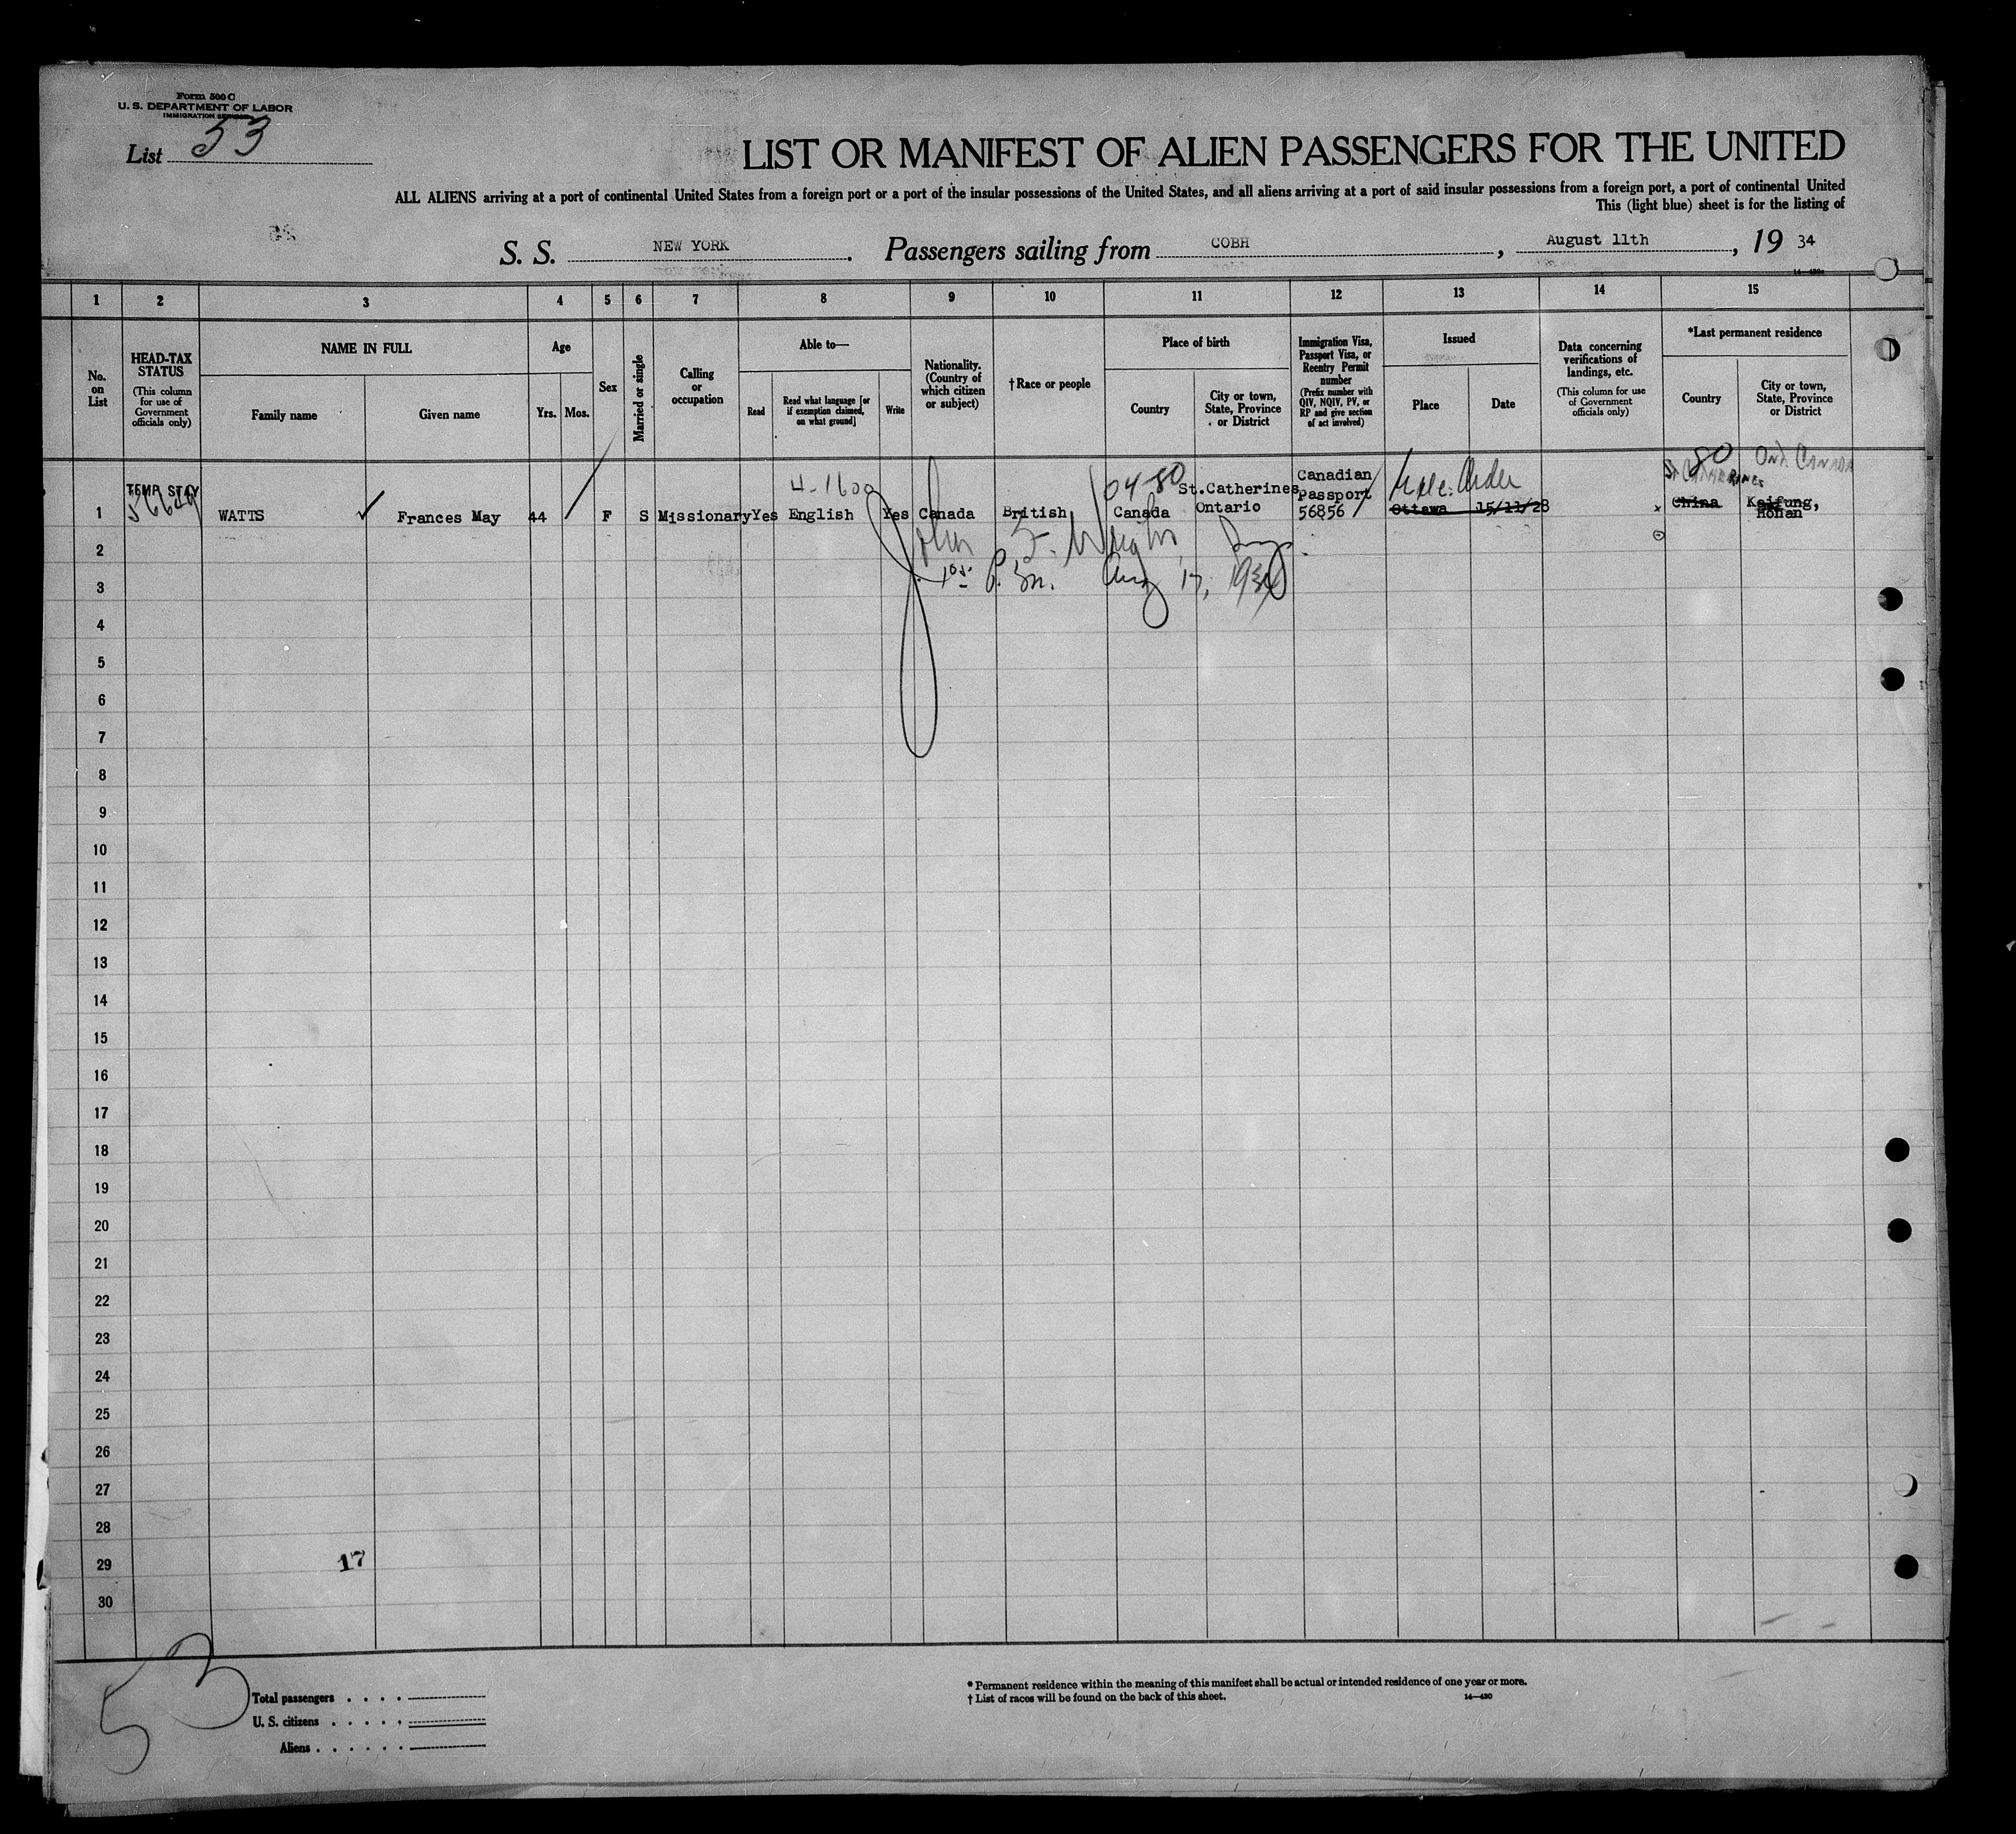 Form 500 C
U. S. DEPARTMENT OF LABOR
IMMIGRATION SERVICE
List 53
LIST OR MANIFEST OF ALIEN PASSENGERS FOR THE UNITED
ALL ALIENS arriving at a port of continental United States from a foreign port or a port of the insular possessions of the United States, and all aliens arriving at a port of said insular possessions from a foreign port, a port of continental United
This (light blue) sheet is for the listing of
S. S. NEW YORK. Passengers sailing from COBH, August 11th, 19 34
1 2 3 4 5 6 7 8 9 10 11 12 13 14 15
No. on List
HEAD-TAX STATUS
(This column for use of Government officials only)
NAME IN FULL
Family name
Given name
Age
Yrs.
Mos.
Sex
Married or single
Calling or occupation
Able to—
Read
Read what language [or if exemption claimed, on what ground]
Write
Nationality. (Country of which citizen or subject)
† Race or people
Place of birth
Country
City or town, State, Province or District
Immigration Visa, Passport Visa, or Reentry Permit number
(Prefix number with QIV, NQIV, PV, or RP and give section of act involved)
Issued
Place
Date
Data concerning verifications of landings, etc.
(This column for use of Government officials only)
*Last permanent residence
Country
City or town, State, Province or District
TEMP STAY
4-1600
04-80
St.Catherines
Canadian
Passport
Exec. Order
80
Ont. CANADA
St CATHARINES
1 WATTS Frances May 44 F S Missionary Yes English Yes Canada British Canada Ontario 56856 Ottawa 15/11/28 x China Kaifung,
Honan
2
Aug 17, 1934
3
4
5
6
7
8
9
10
11
12
13
14
15
16
17
18
19
20
21
22
23
24
25
26
27
28
29 17
30
53
Total passengers
U. S. citizens
Aliens
* Permanent residence within the meaning of this manifest shall be actual or intended residence of one year or more.
† List of races will be found on the back of this sheet.
14—430